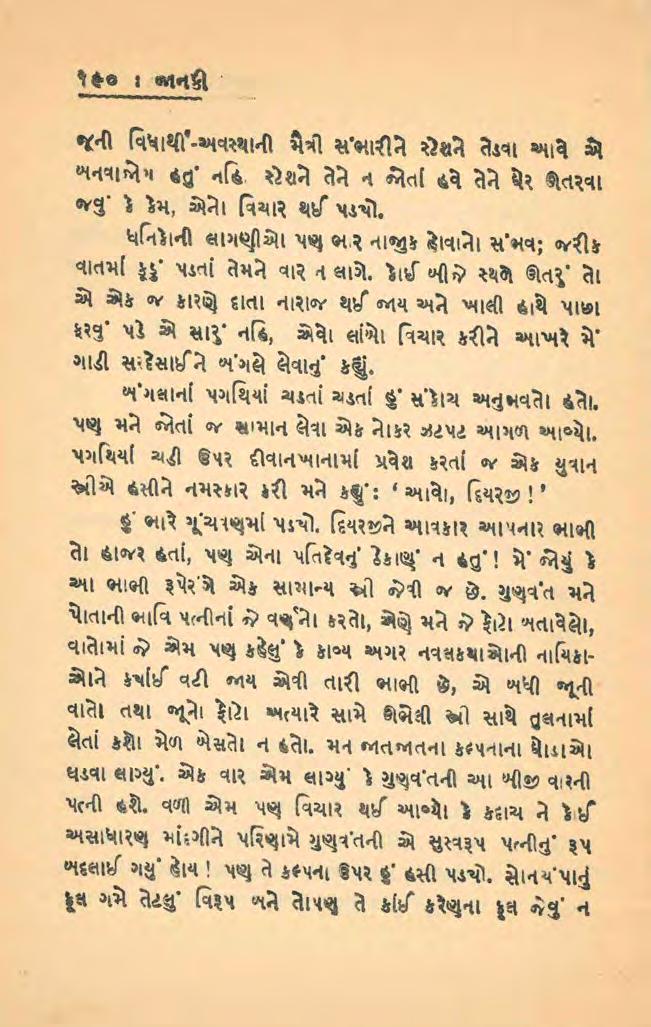 ૧૯૦ : જાનકી
જૂની વિદ્યાર્થી-અવસ્થાની મૈત્રી સંભારીને સ્ટેશને તેડવા આવે એ
બનવાજોગ હતું નહિ. સ્ટેશને તેને ન જોતાં હવે તેને ઘેર ઊતરવા
જવું કે કેમ, એનો વિચાર થઈ પડ્યો.
ધનિકોની લાગણીઓ પણ ભારે નાજુક હોવાનો સંભવ; જરીક
વાતમાં કૂડું પડતાં તેમને વાર ન લાગે. કોઈ બીજે સ્થળે ઊતરું તો
એ એક જ કારણે દાતા નારાજ થઈ જાય અને ખાલી હાથે પાછા
ફરવું પડે એ સારું નહિ, એવો લાંબો વિચાર કરીને આખરે મેં
ગાડી સરદેસાઈને બંગલે લેવાનું કહ્યું.
બંગલાનાં પગથિયાં ચડતાં ચડતાં હું સંકોચ અનુભવતો હતો.
પણ મને જોતાં જ સામાન લેવા એક નોકર ઝટપટ આગળ આવ્યો.
પગથિયાં ચડી ઉપર દીવાનખાનામાં પ્રવેશ કરતાં જ એક યુવાન
સ્ત્રીએ હસીને નમસ્કાર કરી મને કહ્યું: ‘ આવો, દિયરજી ! ’
હું ભારે ગૂંચવણમાં પડ્યો. દિયરજીને આવકાર આપનાર ભાભી
તો હાજર હતાં, પણ એના પતિદેવનું ઠેકાણું ન હતું! મેં જોયું કે
આ ભાભી રૂપેરંગે એક સામાન્ય સ્ત્રી જેવી જ છે. ગુણવંત મને
પોતાની ભાવિ પત્નીનાં જે વર્ણનો કરતો, એણે મને જે ફોટો બતાવેલો,
વાતોમાં જે એમ પણ કહેલું કે કાવ્ય અગર નવલકથાઓની નાયિકા-
ઓને ક્યાંઈ વટી જાય એવી તારી ભાભી છે, એ બધી જૂની
વાતો તથા જૂનો ફોટો અત્યારે સામે ઊભેલી સ્ત્રી સાથે તુલનામાં
લેતાં કશો મેળ બેસતો ન હતો. મન જાતજાતના કલ્પનાના ઘોડાઓ
ઘડવા લાગ્યું. એક વાર એમ લાગ્યું કે ગુણવંતની આ બીજી વારની
પત્ની હશે. વળી એમ પણ વિચાર થઈ આવ્યો કે કદાચ ને કોઈ
અસાધારણ માંદગીને પરિણામે ગુણવંતની એ સુસ્વરૂપ પત્નીનું રૂપ
બદલાઈ ગયું હોય ! પણ તે કલ્પના ઉપર હું હસી પડ્યો. સોનચંપાનું
ફૂલ ગમે તેટલું વિરૂપ બને તોપણ તે કાંઈ કરેણના ફૂલ જેવું ન